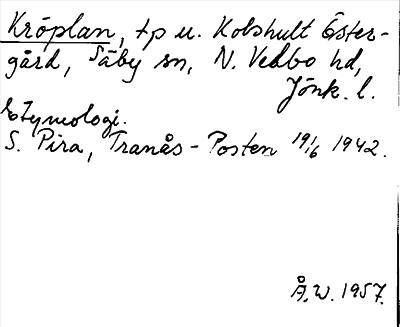 Kröplan, tp u. Kolshult Öster-
gård, Säby sn, N. Vedbo hd,
Jönk. l.
Etymologi.
S. Pira, Tranås-Posten 19/6 1942.
Å. W. 1957.